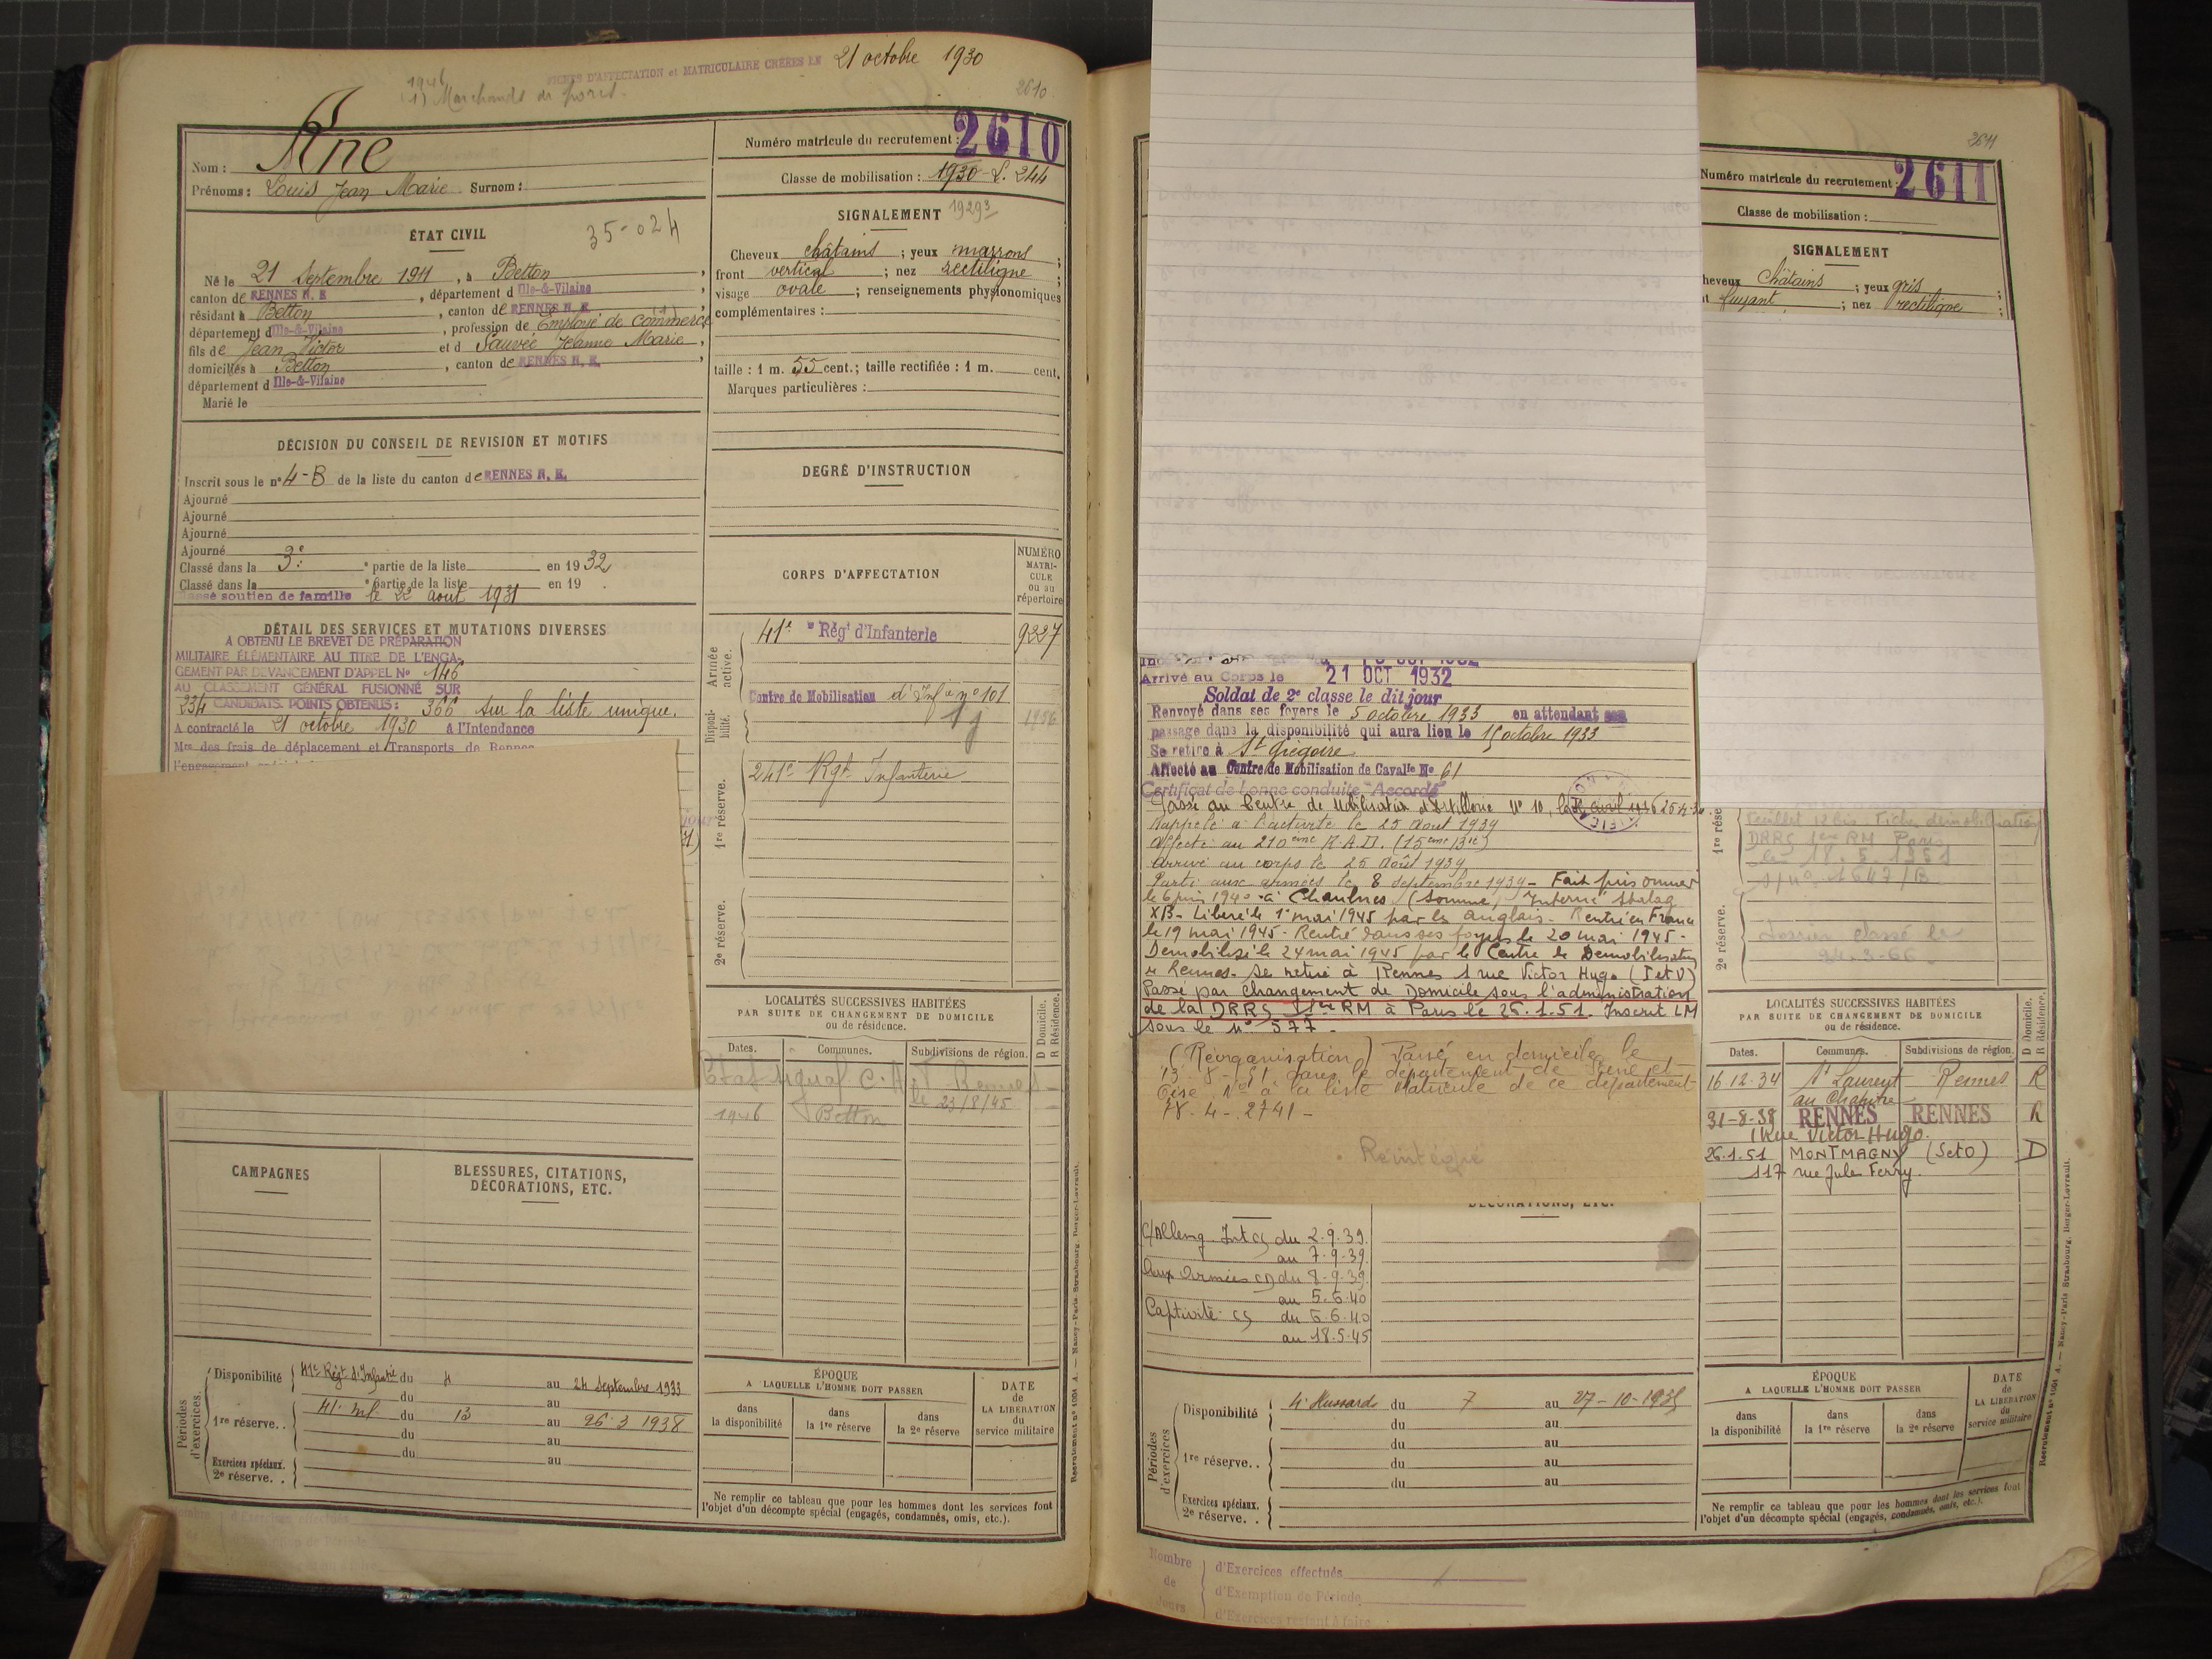 FICHES D'AFFECTATION et MATRICULAIRE CRÉÉES LE 21 octobre 1930
1946
(1) Marchands de porcs.
2610
Nom : Riné
Prénoms : Louis Jean Marie Surnom :
Numéro matricule du recrutement : 2610
Classe de mobilisation : 1930 - L. 244
ÉTAT CIVIL
35-024
Né le 21 Septembre 1911, à Betton,
canton de RENNES N. E., département d Ille-&-Vilaine,
résidant à Betton, canton de RENNES N. E.
département d Ille-&-Vilaine, profession de Employé de commerce (1)
fils de Jean Victor et d Sauvée Jeanne Marie,
domiciliés à Betton, canton de RENNES N. E.,
département d Ille-&-Vilaine
Marié le
SIGNALEMENT 1929 3
Cheveux châtains ; yeux marrons ;
front vertical ; nez rectiligne ;
visage ovale ; renseignements physionomiques
complémentaires :
taille : 1 m. 55 cent.; taille rectifiée : 1 m. cent.
Marques particulières :
DÉCISION DU CONSEIL DE REVISION ET MOTIFS
Inscrit sous le n° 4-B de la liste du canton de RENNES N. E.
Ajourné
Ajourné
Ajourné
Ajourné
Classé dans la 3e ° partie de la liste en 1932
Classé dans la ° partie de la liste en 19 .
Classé soutien de famille le 22 août 1931
DEGRÉ D'INSTRUCTION
DÉTAIL DES SERVICES ET MUTATIONS DIVERSES
A OBTENU LE BREVET DE PRÉPARATION
MILITAIRE ÉLÉMENTAIRE AU TITRE DE L'ENGA-
GEMENT PAR DEVANCEMENT D'APPEL N° 146
AU CLASSEMENT GÉNÉRAL FUSIONNÉ SUR
234 CANDIDATS. POINTS OBTENUS : 366 sur la liste unique.
A contracté le 21 octobre 1930 à l'Intendance
Mre des frais de déplacement et Transports de Rennes
CORPS D'AFFECTATION
NUMÉRO MATRI-CULE ou au répertoire
Armée active.
41e Régt d'Infanterie 9227
Disponi-bilité.
Centre de Mobilisation d'Infie n° 101
1re réserve.
241e Rgt Infanterie
2e réserve.
LOCALITÉS SUCCESSIVES HABITÉES
PAR SUITE DE CHANGEMENT DE DOMICILE
ou de résidence.
D Domicile.
R Résidence.
Dates. Communes. Subdivisions de région.
le 23/8/45
1946 Betton
CAMPAGNES
BLESSURES, CITATIONS,
DÉCORATIONS, ETC.
Périodes d'exercices.
Disponibilité 41e Régt d'Infanrie du 4 au 24 Septembre 1933
du au
1re réserve. . 41e Inf. du 13 au 26-3 1938
du au
du au
Exercices spéciaux.
2e réserve. .
ÉPOQUE
A LAQUELLE L'HOMME DOIT PASSER
dans la disponibilité
dans la 1re réserve
dans la 2e réserve
DATE de LA LIBÉRATION du service militaire
Ne remplir ce tableau que pour les hommes dont les services font
l'objet d'un décompte spécial (engagés, condamnés, omis, etc.).
Recrutement n° 1001 A. — Nancy-Paris-Strasbourg. Berger-Levrault.
2611
Numéro matricule du recrutement : 2611
Classe de mobilisation :
SIGNALEMENT
heveux Châtains ; yeux gris ;
t fuyant ; nez rectiligne ;
Arrivé au Corps le 21 OCT 1932
Soldat de 2e classe le dit jour
Renvoyé dans ses foyers le 5 octobre 1933 en attendant son
passage dans la disponibilité qui aura lieu le 15 octobre 1933
Se retire à St Grégoire
Affecté au Centre de Mobilisation de Cavalie N° 61
Certificat de bonne conduite "Accordé"
Passé au Centre de Mobilisation d'Artillerie N° 10, le
Rappelé à l'activité le 25 Août 1939
Affecté au 210ème R.A.D. (15ème Bie)
Arrivé au corps le 25 Août 1939
Parti aux armées le 8 septembre 1939 - Fait prisonnier
le 6 juin 1940 à Chaulnes (Somme) Interné Stalag
XB - Libéré le 1er mai 1945 par les Anglais - Rentré en France
le 19 mai 1945 - Rentré dans ses foyers le 20 mai 1945 -
Démobilisé le 24 mai 1945 par le Centre de Démobilisation
de Rennes. Se retire à Rennes 1 rue Victor Hugo (I et V)
Passé par changement de Domicile sous l'administration
de la DRRS 1ère RM à Paris le 26.1.51. Inscrit LM
sous le n° 577 -
(Réorganisation) Passé en domicile le
13-8-51 dans le département de Seine et
Oise N° à la liste Matricule de ce département
78-4-2741-
Réintégré
1re rése
DRRS 1ere RM Paris
le 18.5.1951
2e réserve.
Dossier classé le
24-3-66-
LOCALITÉS SUCCESSIVES HABITÉES
PAR SUITE DE CHANGEMENT DE DOMICILE
ou de résidence.
D Domicile.
R Résidence.
Dates. Communes. Subdivisions de région.
16-12-34 St Laurent Rennes R
31-8-38 RENNES RENNES R
1 Rue Victor Hugo.
26.1.51 MONTMAGNY (SetO) D
117 rue Jules Ferry.
DÉCORATIONS, ETC.
C/Allemg. Int CS du 2.9.39.
au 7.9.39.
Aux Armées CD du 8-9-39.
au 5.6.40
Captivité CS du 6.6.40
au 18.5.45
Périodes d'exercices
Disponibilité 4e Hussards du 7 au 27-10-1935
du au
du au
1re réserve. . du au
du au
Exercices spéciaux.
2e réserve. .
ÉPOQUE
A LAQUELLE L'HOMME DOIT PASSER
dans la disponibilité
dans la 1re réserve
dans la 2e réserve
DATE de LA LIBÉRATION du service militaire
Ne remplir ce tableau que pour les hommes dont les services font
l'objet d'un décompte spécial (engagés, condamnés, omis, etc.).
Recrutement n° 1001 A. — Nancy-Paris-Strasbourg. Berger-Levrault.
Nombre de Jours
d'Exercices effectués
d'Exemption de Période
d'Exercices restant à faire